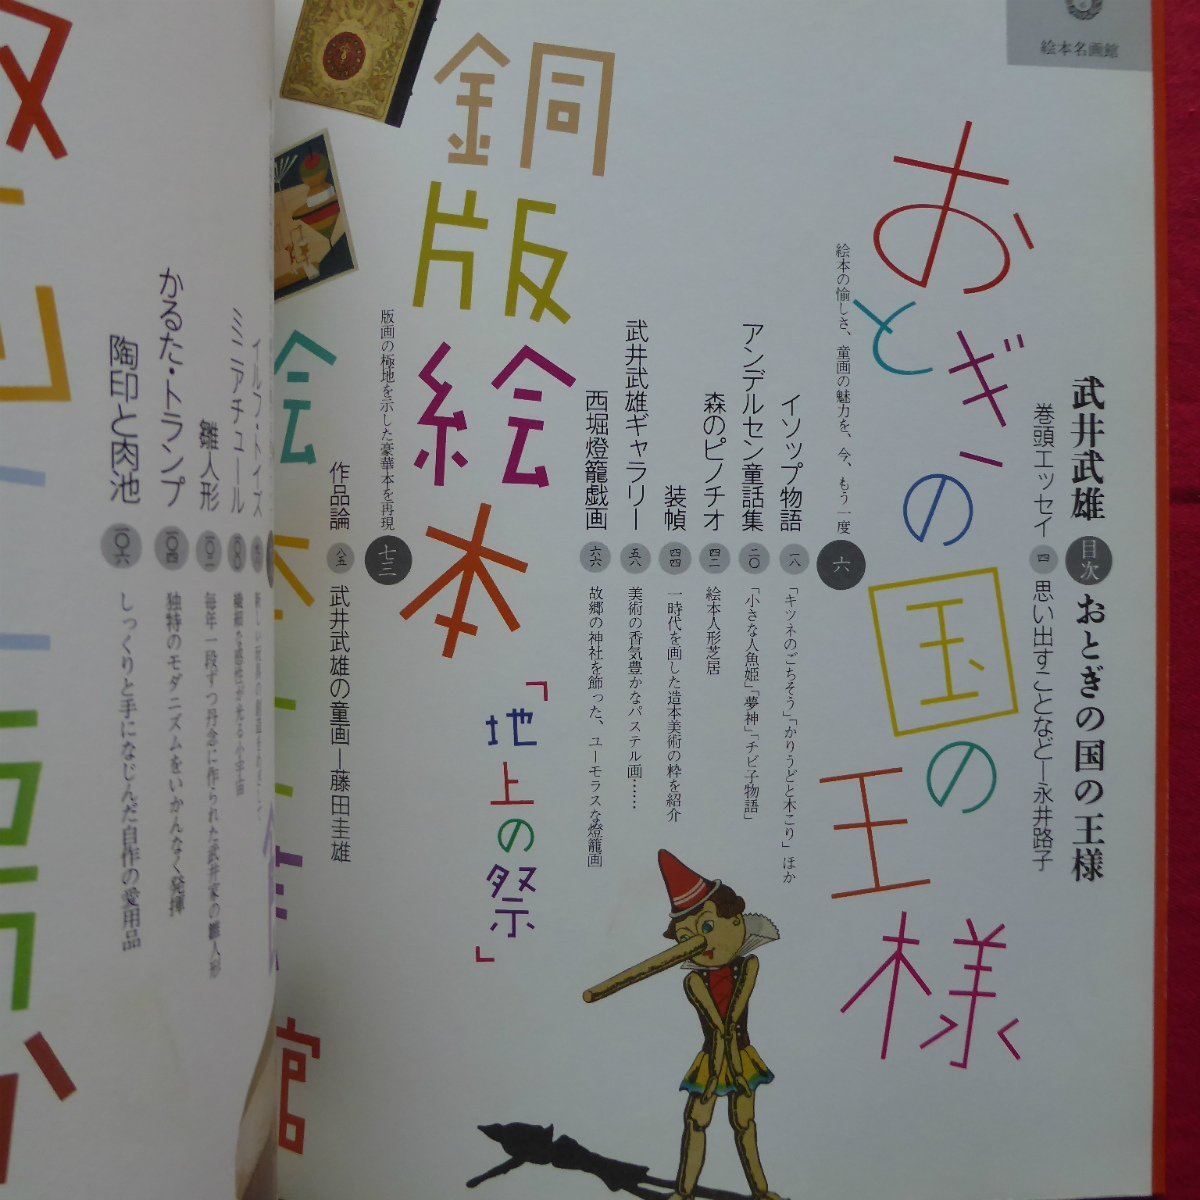 絵本名画館
武井武雄 目次 おとぎの国の王様
巻頭エッセイ 四 思い出すことなど―永井路子
おとぎの国の王様
絵本の愉しさ、童画の魅力を、今、もう一度 六
イソップ物語 一八 「キツネのごちそう」「かりうどと木こり」ほか
アンデルセン童話集 二〇 「小さな人魚姫」「夢神」「チビ子物語」
森のピノチオ 四二 絵本人形芝居
装幀 四四 一時代を画した造本美術の粋を紹介
武井武雄ギャラリー 五八 美術の香気豊かなパステル画……
西堀燈籠戯画 六六 故郷の神社を飾った、ユーモラスな燈籠画
銅版絵本
「地上の祭」
版画の極地を示した豪華本を再現 七三
作品論 八五 武井武雄の童画―藤田圭雄
絵本
館
イルフ・トイズ
ミニアチュール 一〇〇 繊細な感性が光る小宇宙
雛人形 一〇二 毎年一段ずつ丹念に作られた武井家の雛人形
かるた・トランプ 一〇四 独特のモダニズムをいかんなく発揮
陶印と肉池 一〇六 しっくりと手になじんだ自作の愛用品